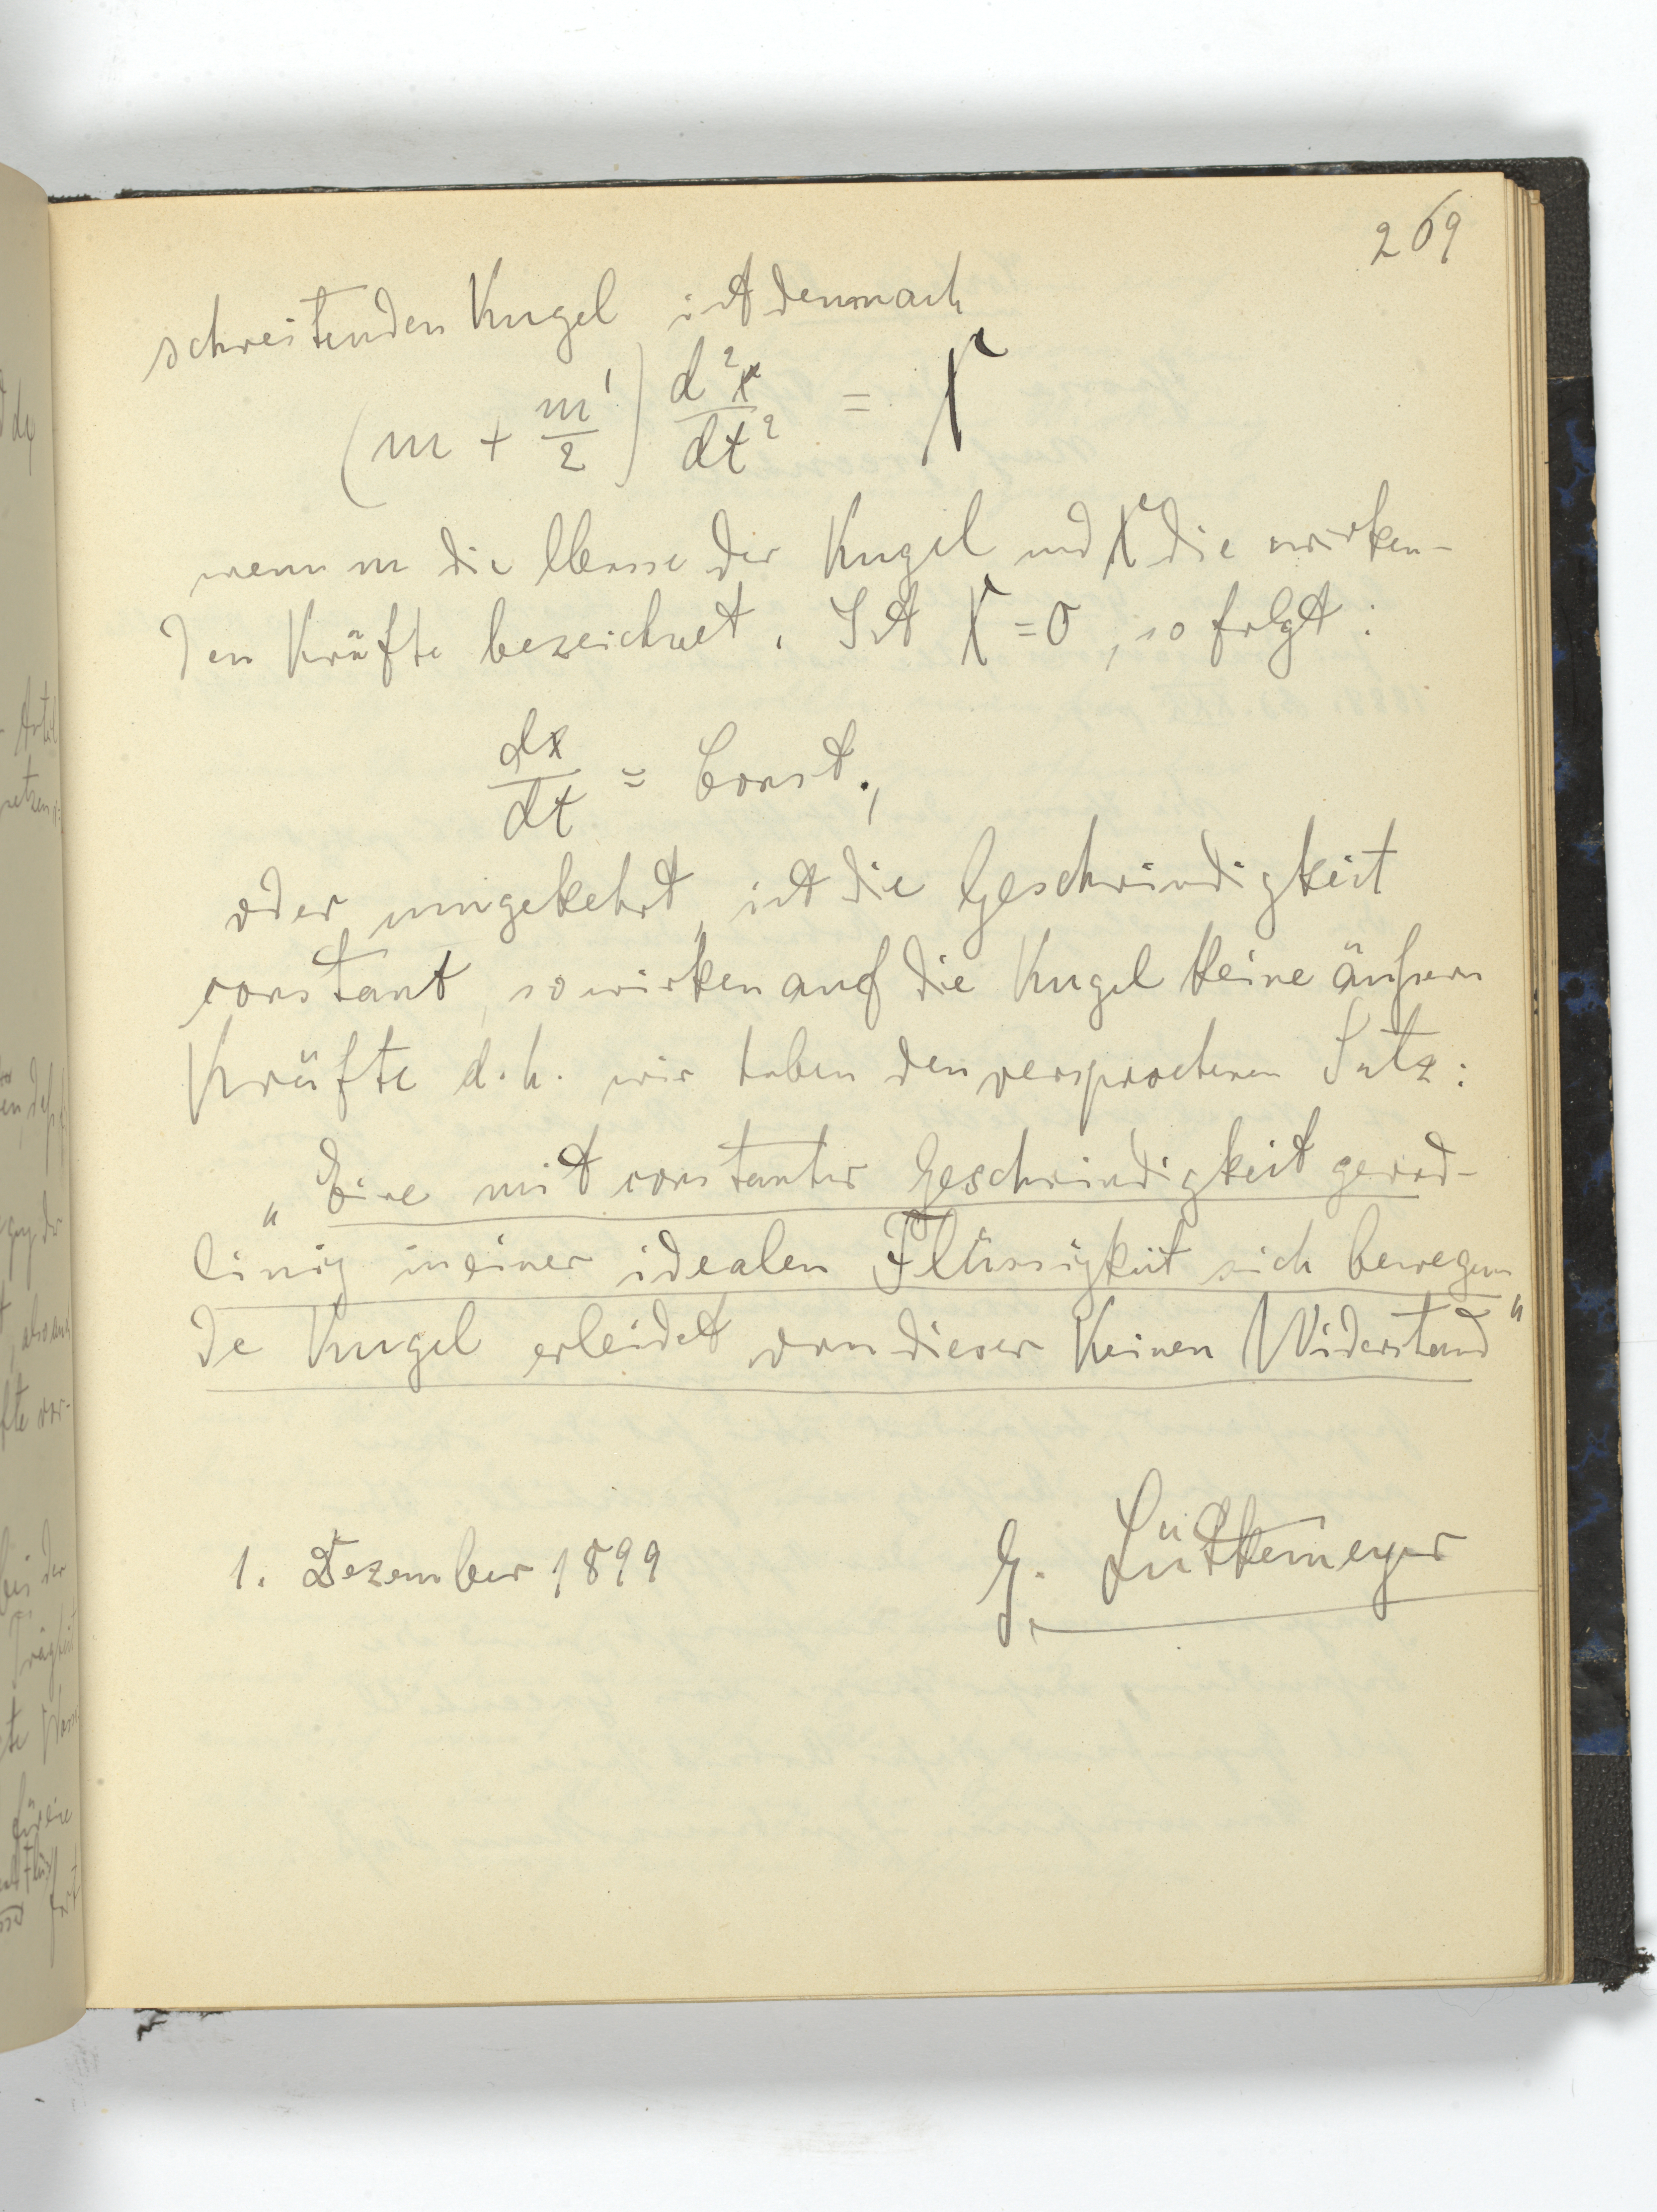 269
schreitenden Kugel ist demnach
(m + m'/2) d²x/dt² = X
wenn m die Masse der Kugel und X die wirken-
den Kräfte bezeichnet. Ist X = 0, so folgt:
dx/dt = Const.,
oder umgekehrt, ist die Geschwindigkeit
constant, so wirken auf die Kugel keine äußern
Kräfte d. h. wir haben den versprochenen Satz:
„Eine mit constanter Geschwindigkeit gerad-
linig in einer idealen Flüssigkeit sich bewegen
de Kugel erleidet von dieser Keinen Widerstand“
1. Dezember 1899
G. Lüttemeyer